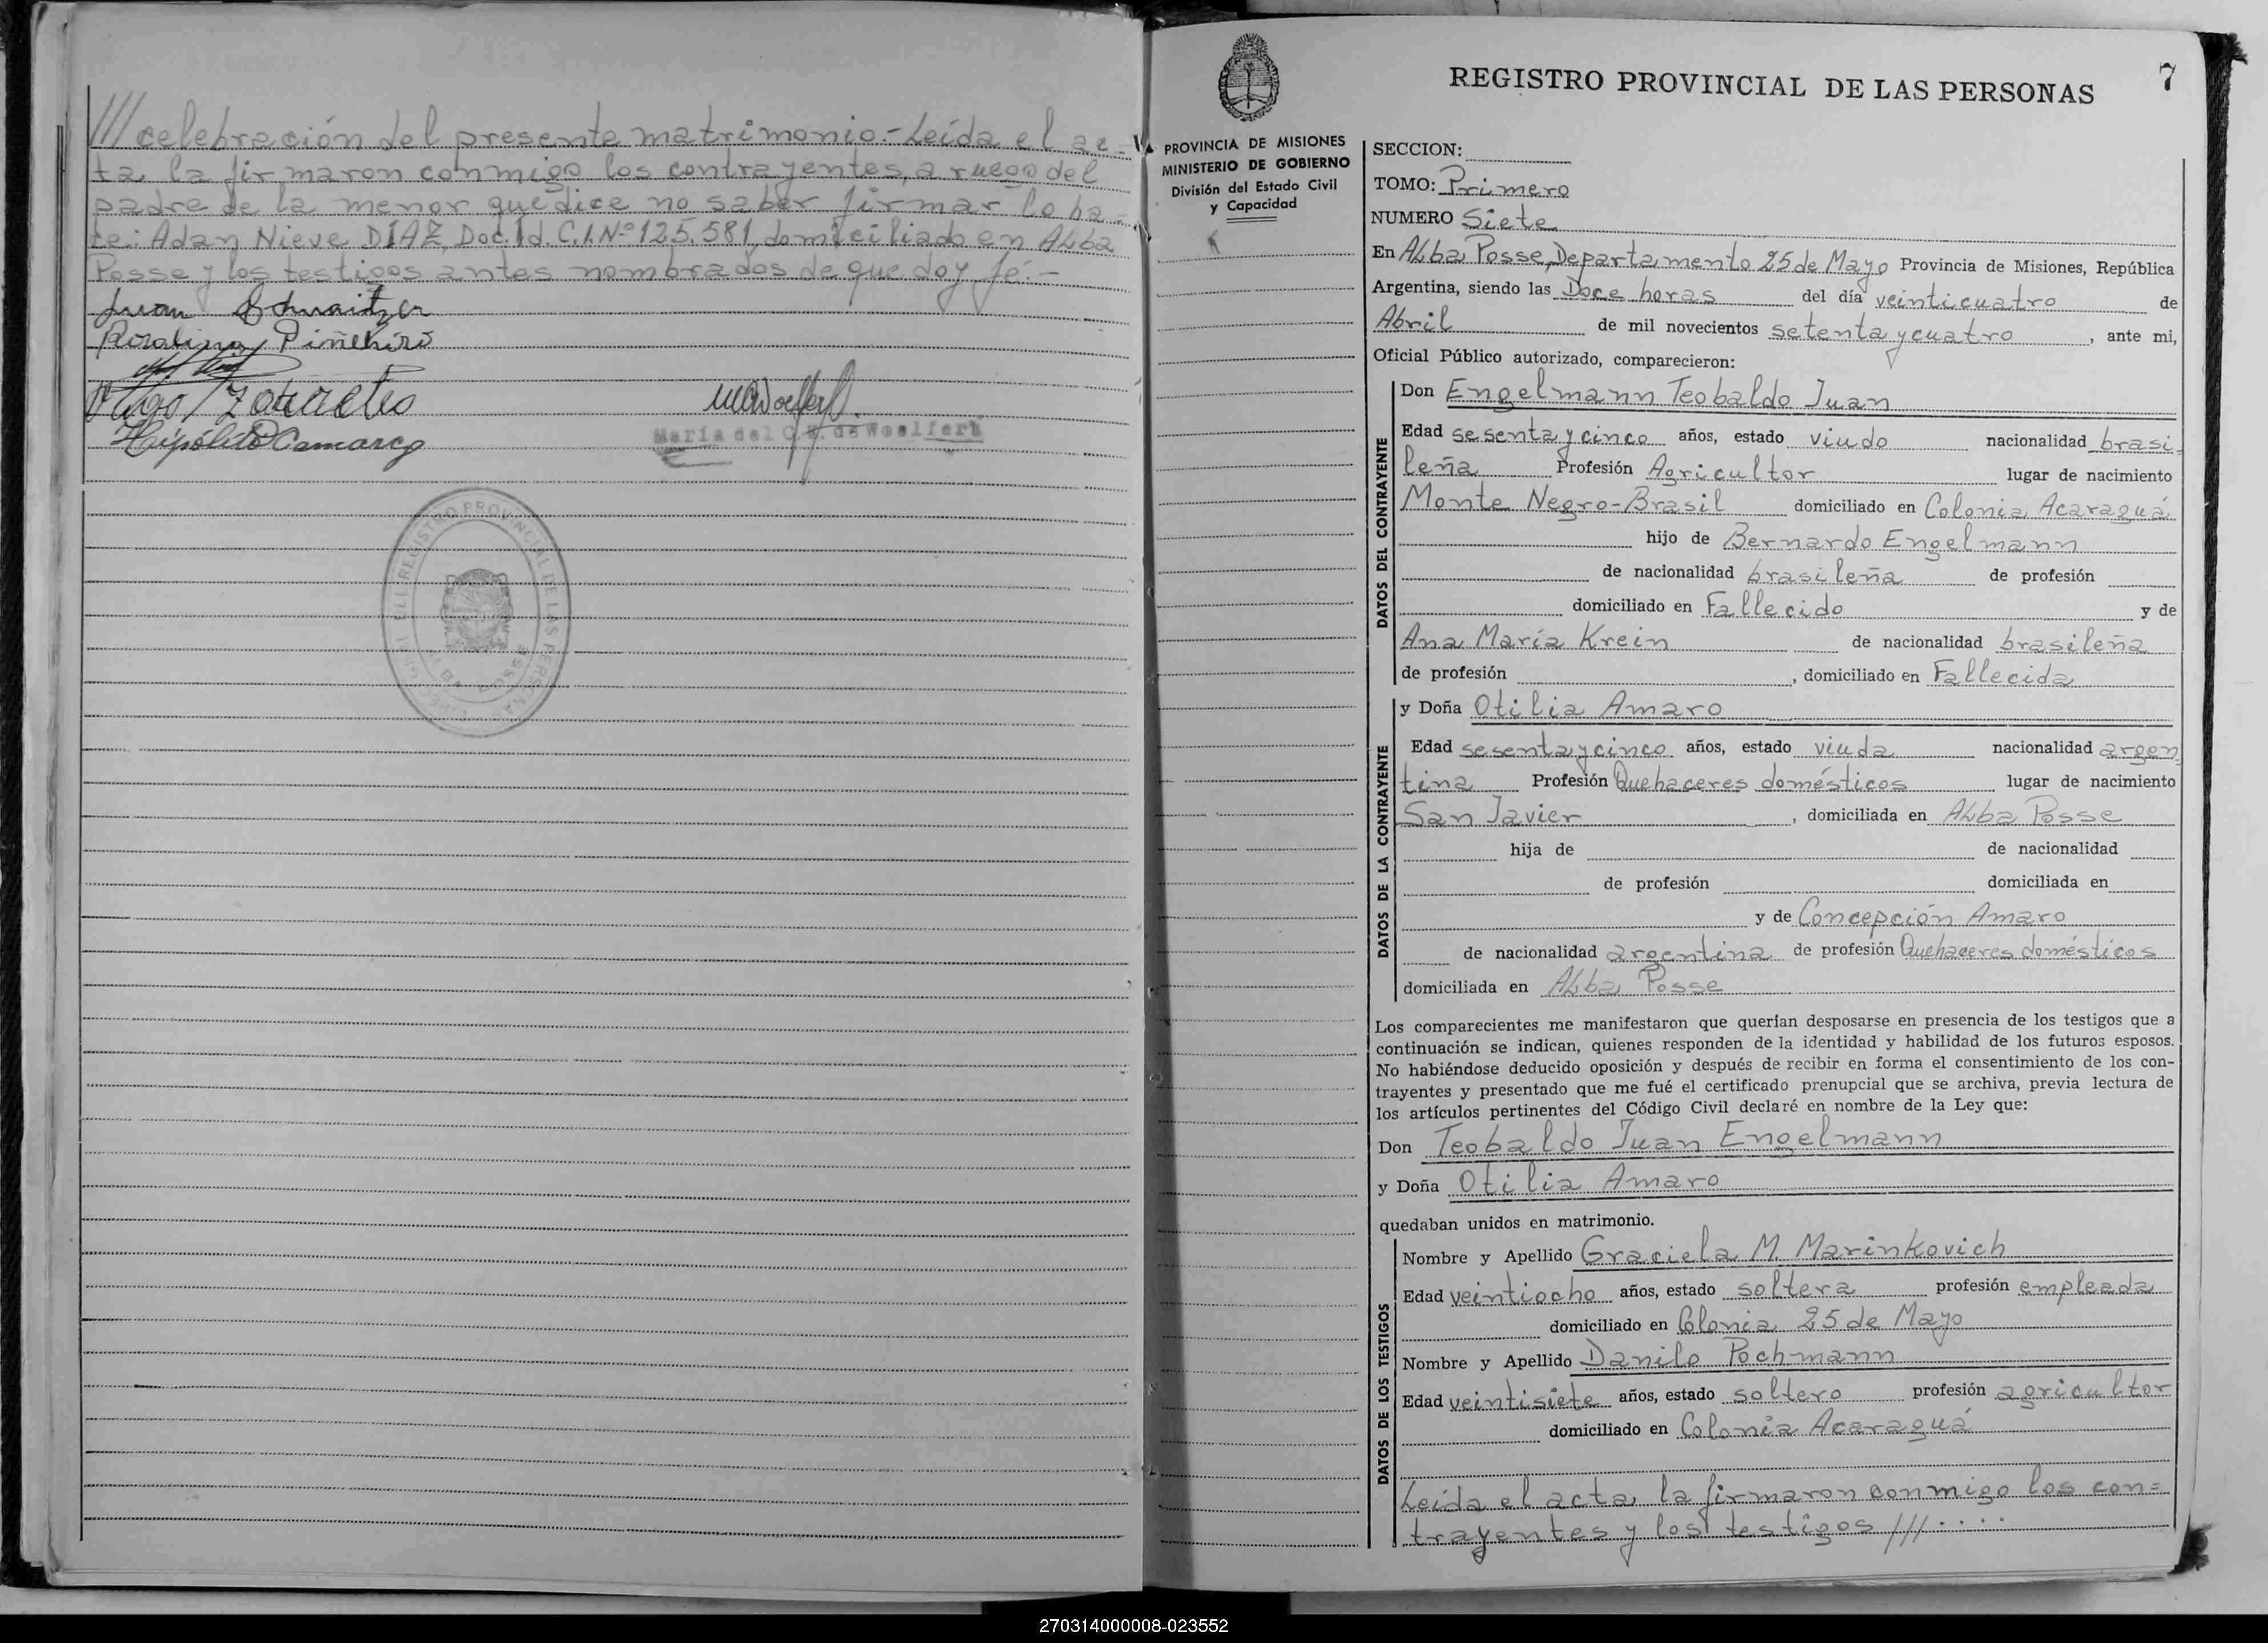 /// celebración del presente matrimonio.- Leída el ac-
ta la firmaron conmigo los contrayentes, a ruego del
padre de la menor que dice no saber firmar lo ha-
ce: Adan Nieve DÍAZ, Doc. Id. C.I. Nº 125.581, domiciliado en Alba
Posse y los testigos antes nombrados de que doy fé.-
Juan Schwaitzer
Rosalina Piñehiro
Hugo Zarrettio
Hipólito Camargo
María del C. B. de Woelfert
REGISTRO PROVINCIAL DE LAS PERSONAS
ALBA POSSE
REGISTRO PROVINCIAL DE LAS PERSONAS
7
PROVINCIA DE MISIONES
MINISTERIO DE GOBIERNO
División del Estado Civil
y Capacidad
SECCION:
TOMO: Primero
NUMERO Siete
En Alba Posse, Departamento 25 de Mayo Provincia de Misiones, República
Argentina, siendo las Doce horas del día veinticuatro de
Abril de mil novecientos setenta y cuatro, ante mi,
Oficial Público autorizado, comparecieron:
DATOS DEL CONTRAYENTE
Don Engelmann Teobaldo Juan
Edad sesenta y cinco años, estado viudo nacionalidad brasi-
leña Profesión Agricultor lugar de nacimiento
Monte Negro-Brasil domiciliado en Colonia Acaraguá
hijo de Bernardo Engelmann
de nacionalidad brasileña de profesión
domiciliado en Fallecido y de
Ana María Krein de nacionalidad brasileña
de profesión , domiciliado en Fallecida
DATOS DE LA CONTRAYENTE
y Doña Otilia Amaro
Edad sesenta y cinco años, estado viuda nacionalidad argen-
tina Profesión Quehaceres domésticos lugar de nacimiento
San Javier , domiciliada en Alba Posse
hija de de nacionalidad
de profesión domiciliada en
y de Concepción Amaro
de nacionalidad argentina de profesión Quehaceres domésticos
domiciliada en Alba Posse
Los comparecientes me manifestaron que querían desposarse en presencia de los testigos que a
continuación se indican, quienes responden de la identidad y habilidad de los futuros esposos.
No habiéndose deducido oposición y después de recibir en forma el consentimiento de los con-
trayentes y presentado que me fué el certificado prenupcial que se archiva, previa lectura de
los artículos pertinentes del Código Civil declaré en nombre de la Ley que:
Don Teobaldo Juan Engelmann
y Doña Otilia Amaro
quedaban unidos en matrimonio.
DATOS DE LOS TESTIGOS
Nombre y Apellido Graciela M Marinkovich
Edad veintiocho años, estado soltera profesión empleada
domiciliado en Colonia 25 de Mayo
Nombre y Apellido Danilo Pochmann
Edad veintisiete años, estado soltero profesión agricultor
domiciliado en Colonia Acaraguá
Leída el acta, la firmaron conmigo los con=
trayentes y los testigos ///....
270314000008-023552